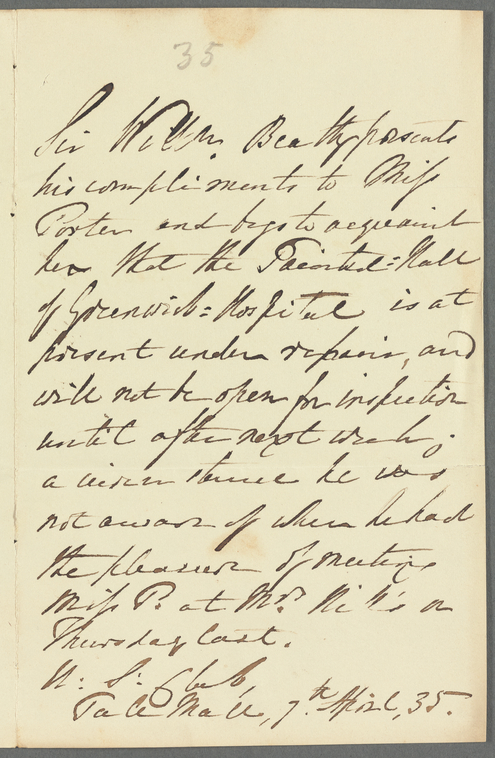 35
Sir Willm. Beatty presents
his compliments to Miss
Porter and begs to acquaint
her that the Painted=Hall
of Greenwich=Hospital is at
present under repair, and
will not be open for inspection
until after next week;
a circumstance he was
not aware of when he had
the pleasure of meeting
Miss P. at Mrs. on
Thursday last.
U: S: Club,
Pall Mall, 7th. April, 35.